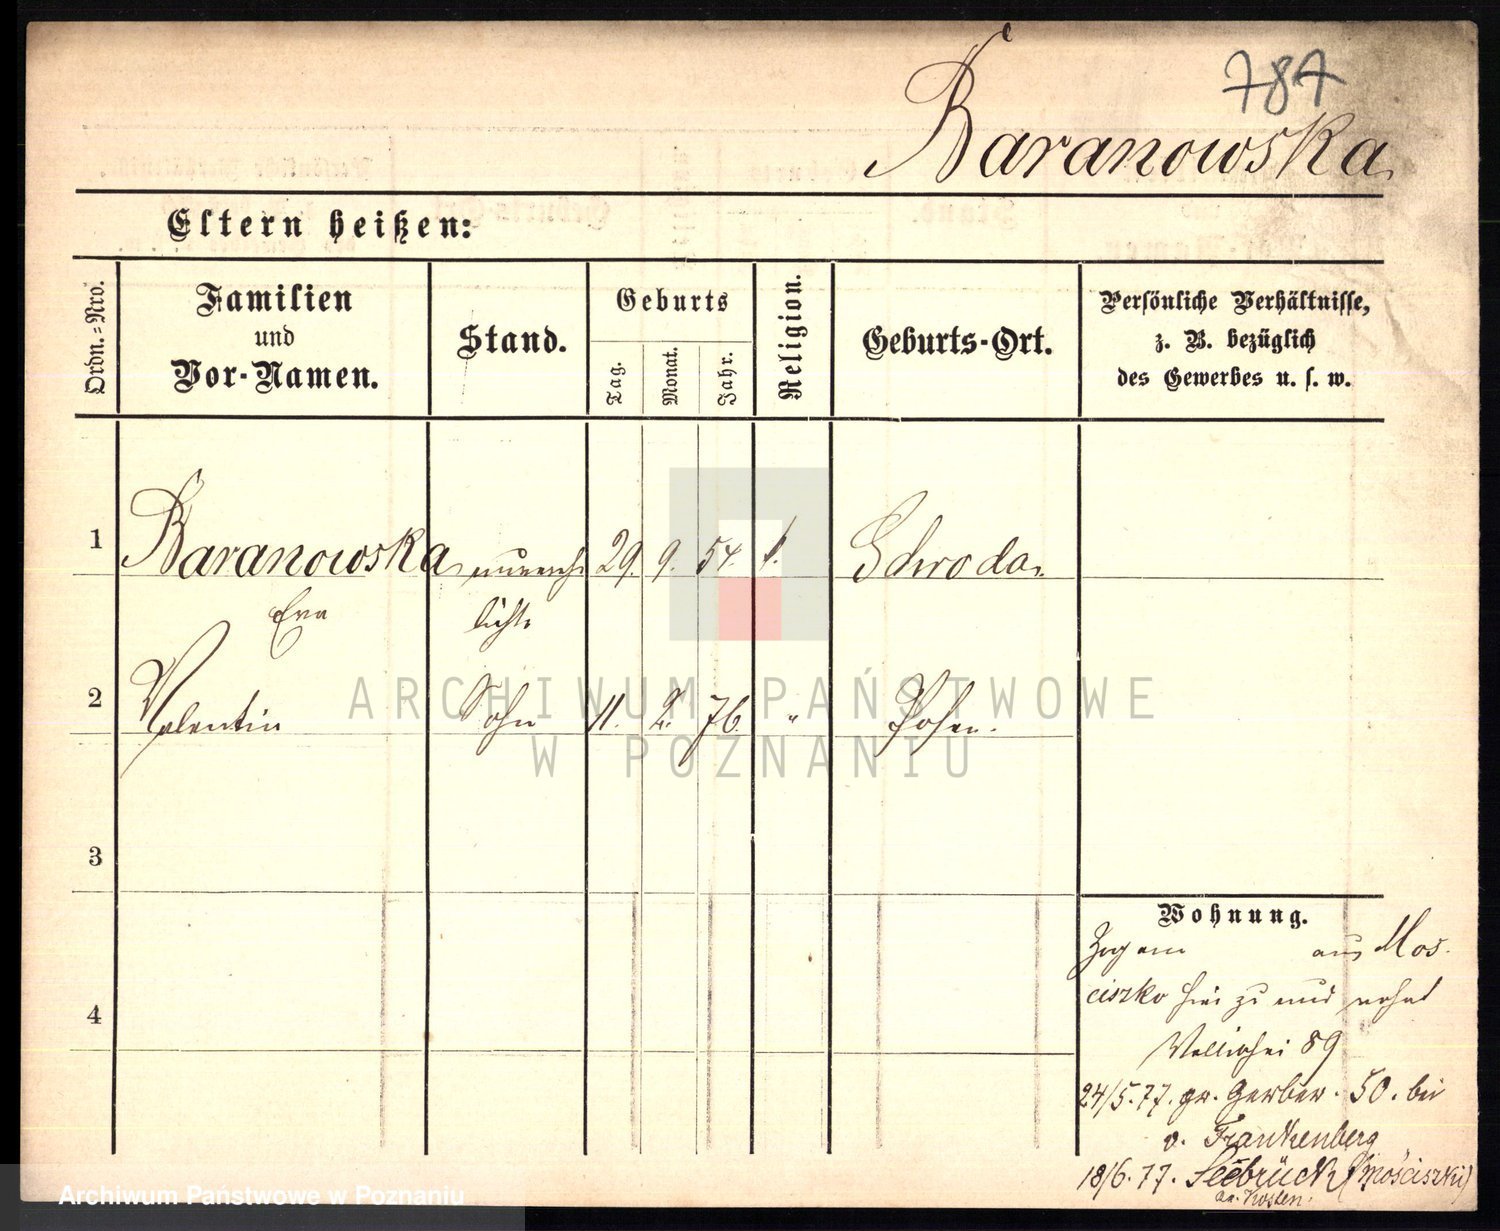 787
Baranowska
Eltern heißen:
Ordn.=Nro.
Familien
und
Vor-Namen.
Stand.
Geburts
Tag.
Monat.
Jahr.
Religion.
Geburts-Ort.
Persönliche Verhältnisse,
z. B. bezüglich
des Gewerbes u. s. w.
1 Baranowska unverehe 29. 9. 54. k. Schroda.
Eva lichte
2 Valentin Sohn 11. 2. 76. " Posen.
ARCHIWUM PAŃSTWOWE
W POZNANIU
3
4
Wohnung.
Zog am aus Mos-
ciszko hier zu und wohnt
Wallischei 89
24/5.77. gr. Gerber. 50. bei
v. Frankenberg
18/6.77. Seebrück (Mościszki)
Kr. Kosten.
Archiwum Państwowe w Poznaniu